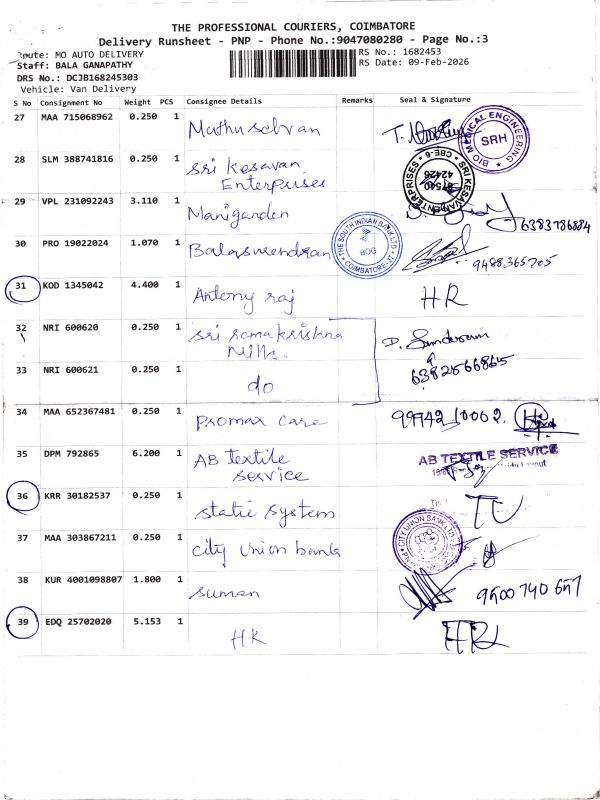 THE PROFESSIONAL COURIERS, COIMBATORE
Delivery Runsheet - PNP - Phone No.:9047080280 - Page No.:3
Route: MO AUTO DELIVERY
RS No.: 1682453
Staff: BALA GANAPATHY
RS Date: 09-Feb-2026
DRS No.: DCJB168245303
Vehicle: Van Delivery
S No Consignment No Weight PCS Consignee Details Remarks Seal & Signature
27 MAA 715068962 0.250 1 Muthuselvan
BIO MEDICAL ENGINEERING SRH
28 SLM 388741816 0.250 1 Sri Kesavan
Enterprises
SRI KESAVAN ENTERPRISES CBE-6
29 VPL 231092243 3.110 1 Manigandan
6383786884
30 PRO 19022024 1.070 1 Balasurendran
THE SOUTH INDIAN BANK LTD BOG COIMBATORE
9488365705
31 KOD 1345042 4.400 1 Antony raj HR
32 NRI 600620 0.250 1 Sri ramakrishna
Mills.
D. Sundaram
6382566865
33 NRI 600621 0.250 1 do
34 MAA 652367481 0.250 1 Promax care 99942 10002.
35 DPM 792865 6.200 1 AB textile
service
AB TEXTILE SERVICE
36 KRR 30182537 0.250 1 static system
37 MAA 303867211 0.250 1 city union bank
CITY UNION BANK LTD
38 KUR 4001098807 1.800 1 suman 9500740657
39 EDQ 25702020 5.153 1 HR HR